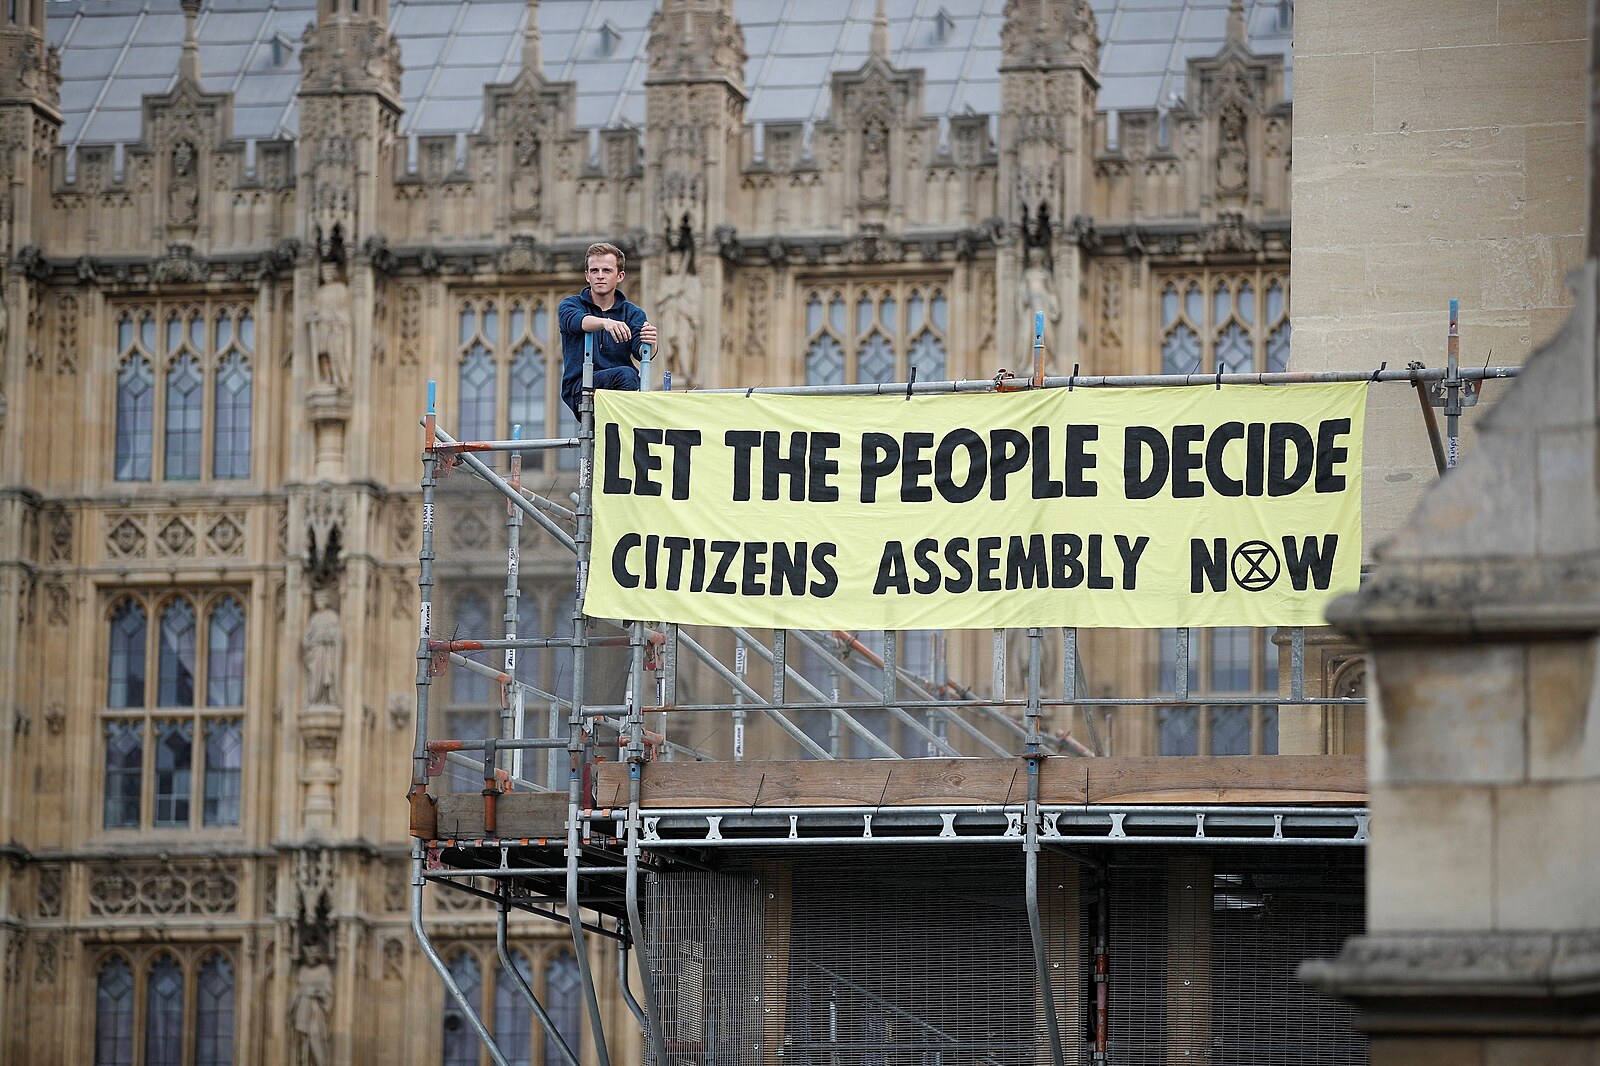 LET THE PEOPLE DECIDE
CITIZENS ASSEMBLY NOW